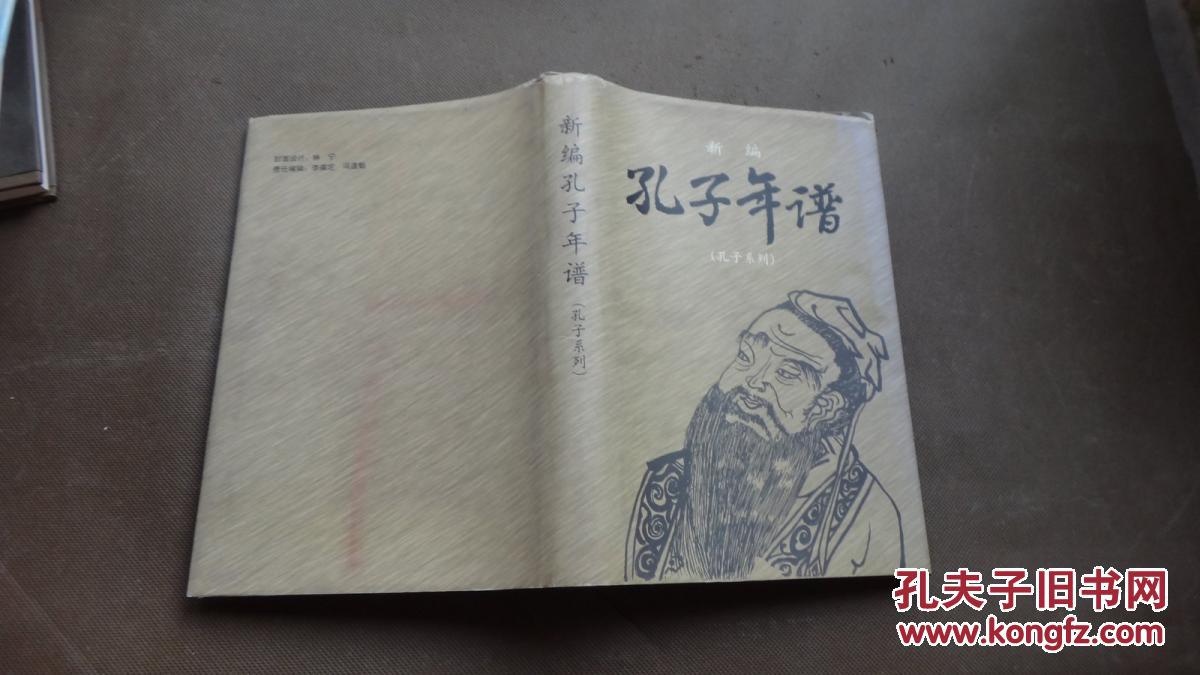 封面设计：钟 宁
新编孔子年谱
（孔子系列）
新 编
孔子年谱
（孔子系列）
孔夫子旧书网
www.kongfz.com